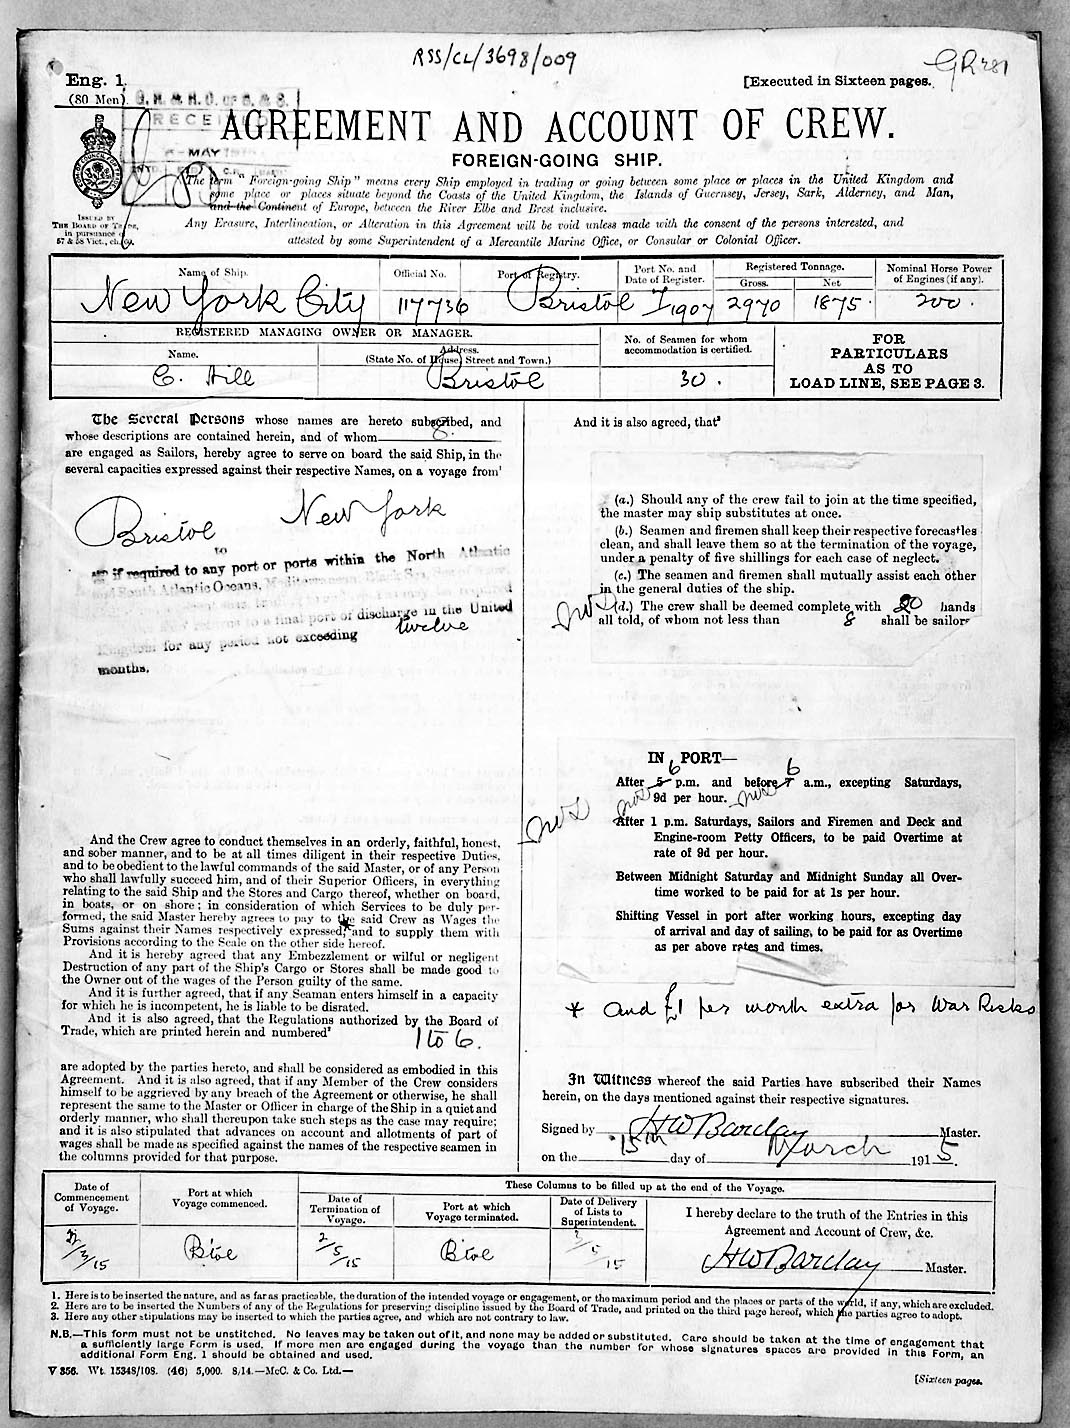 RSS/CL/3698/009
Eng. 1.
(80 Men).
[Executed in Sixteen pages.
RECEIVED
MAY
AGREEMENT AND ACCOUNT OF CREW.
FOREIGN-GOING SHIP.
The term "Foreign-going Ship" means every Ship employed in trading or going between some place or places in the United Kingdom and
some place or places situate beyond the Coasts of the United Kingdom, the Islands of Guernsey, Jersey, Sark, Alderney, and Man,
and the Continent of Europe, between the River Elbe and Brest inclusive.
Any Erasure, Interlineation, or Alteration in this Agreement will be void unless made with the consent of the persons interested, and
attested by some Superintendent of a Mercantile Marine Office, or Consular or Colonial Officer.
ISSUED BY
THE BOARD OF TRADE,
in pursuance of
57 & 58 Vict., ch. 60.
Name of Ship. Official No. Port of Registry. Port No. and Date of Register. Registered Tonnage. Gross. Net Nominal Horse Power of Engines (if any).
New York City 117736 Bristol 7/1907 2970 1875. 200.
REGISTERED MANAGING OWNER OR MANAGER.
Name. Address. (State No. of House, Street and Town.)
No. of Seamen for whom accommodation is certified.
C. Hill Bristol 30.
FOR
PARTICULARS
AS TO
LOAD LINE, SEE PAGE 3.
The Several Persons whose names are hereto subscribed, and
whose descriptions are contained herein, and of whom 8.
are engaged as Sailors, hereby agree to serve on board the said Ship, in the
several capacities expressed against their respective Names, on a voyage from¹
Bristol to New York
if required to any port or ports within the North Atlantic
and South Atlantic Oceans, Mediterranean, Black Sea,
to a final port of discharge in the United
Kingdom for any period not exceeding twelve
months.
And the Crew agree to conduct themselves in an orderly, faithful, honest,
and sober manner, and to be at all times diligent in their respective Duties,
and to be obedient to the lawful commands of the said Master, or of any Person
who shall lawfully succeed him, and of their Superior Officers, in everything
relating to the said Ship and the Stores and Cargo thereof, whether on board,
in boats, or on shore; in consideration of which Services to be duly per-
formed, the said Master hereby agrees to pay to the said Crew as Wages the
Sums against their Names respectively expressed,* and to supply them with
Provisions according to the Scale on the other side hereof.
And it is hereby agreed that any Embezzlement or wilful or negligent
Destruction of any part of the Ship's Cargo or Stores shall be made good to
the Owner out of the wages of the Person guilty of the same.
And it is further agreed, that if any Seaman enters himself in a capacity
for which he is incompetent, he is liable to be disrated.
And it is also agreed, that the Regulations authorized by the Board of
Trade, which are printed herein and numbered²
1 to 6.
are adopted by the parties hereto, and shall be considered as embodied in this
Agreement. And it is also agreed, that if any Member of the Crew considers
himself to be aggrieved by any breach of the Agreement or otherwise, he shall
represent the same to the Master or Officer in charge of the Ship in a quiet and
orderly manner, who shall thereupon take such steps as the case may require;
and it is also stipulated that advances on account and allotments of part of
wages shall be made as specified against the names of the respective seamen in
the columns provided for that purpose.
And it is also agreed, that³
(a.) Should any of the crew fail to join at the time specified,
the master may ship substitutes at once.
(b.) Seamen and firemen shall keep their respective forecastles
clean, and shall leave them so at the termination of the voyage,
under a penalty of five shillings for each case of neglect.
(c.) The seamen and firemen shall mutually assist each other
in the general duties of the ship.
(d.) The crew shall be deemed complete with 20 hands
all told, of whom not less than 8 shall be sailors
IN PORT—
After 5 6 p.m. and before 7 6 a.m., excepting Saturdays,
9d per hour.
After 1 p.m. Saturdays, Sailors and Firemen and Deck and
Engine-room Petty Officers, to be paid Overtime at
rate of 9d per hour.
Between Midnight Saturday and Midnight Sunday all Over-
time worked to be paid for at 1s per hour.
Shifting Vessel in port after working hours, excepting day
of arrival and day of sailing, to be paid for as Overtime
as per above rates and times.
* and £1 per month extra for War Risks
In Witness whereof the said Parties have subscribed their Names
herein, on the days mentioned against their respective signatures.
Signed by HW Barclay Master.
on the 15th day of March 1915.
Date of Commencement of Voyage. Port at which Voyage commenced.
These Columns to be filled up at the end of the Voyage.
Date of Termination of Voyage. Port at which Voyage terminated. Date of Delivery of Lists to Superintendent.
I hereby declare to the truth of the Entries in this
Agreement and Account of Crew, &c.
/3/15 B'tol 2/5/15 B'tol 3/5/15 HW Barclay Master.
1. Here is to be inserted the nature, and as far as practicable, the duration of the intended voyage or engagement, or the maximum period and the places or parts of the world, if any, which are excluded.
2. Here are to be inserted the Numbers of any of the Regulations for preserving discipline issued by the Board of Trade, and printed on the third page hereof, which the parties agree to adopt.
3. Here any other stipulations may be inserted to which the parties agree, and which are not contrary to law.
N.B.—This form must not be unstitched. No leaves may be taken out of it, and none may be added or substituted. Care should be taken at the time of engagement that
a sufficiently large Form is used. If more men are engaged during the voyage than the number for whose signatures spaces are provided in this Form, an
additional Form Eng. 1 should be obtained and used.
V 356. Wt. 15348/108. (46) 5,000. 8/14.—McC. & Co. Ltd.—
[Sixteen pages.